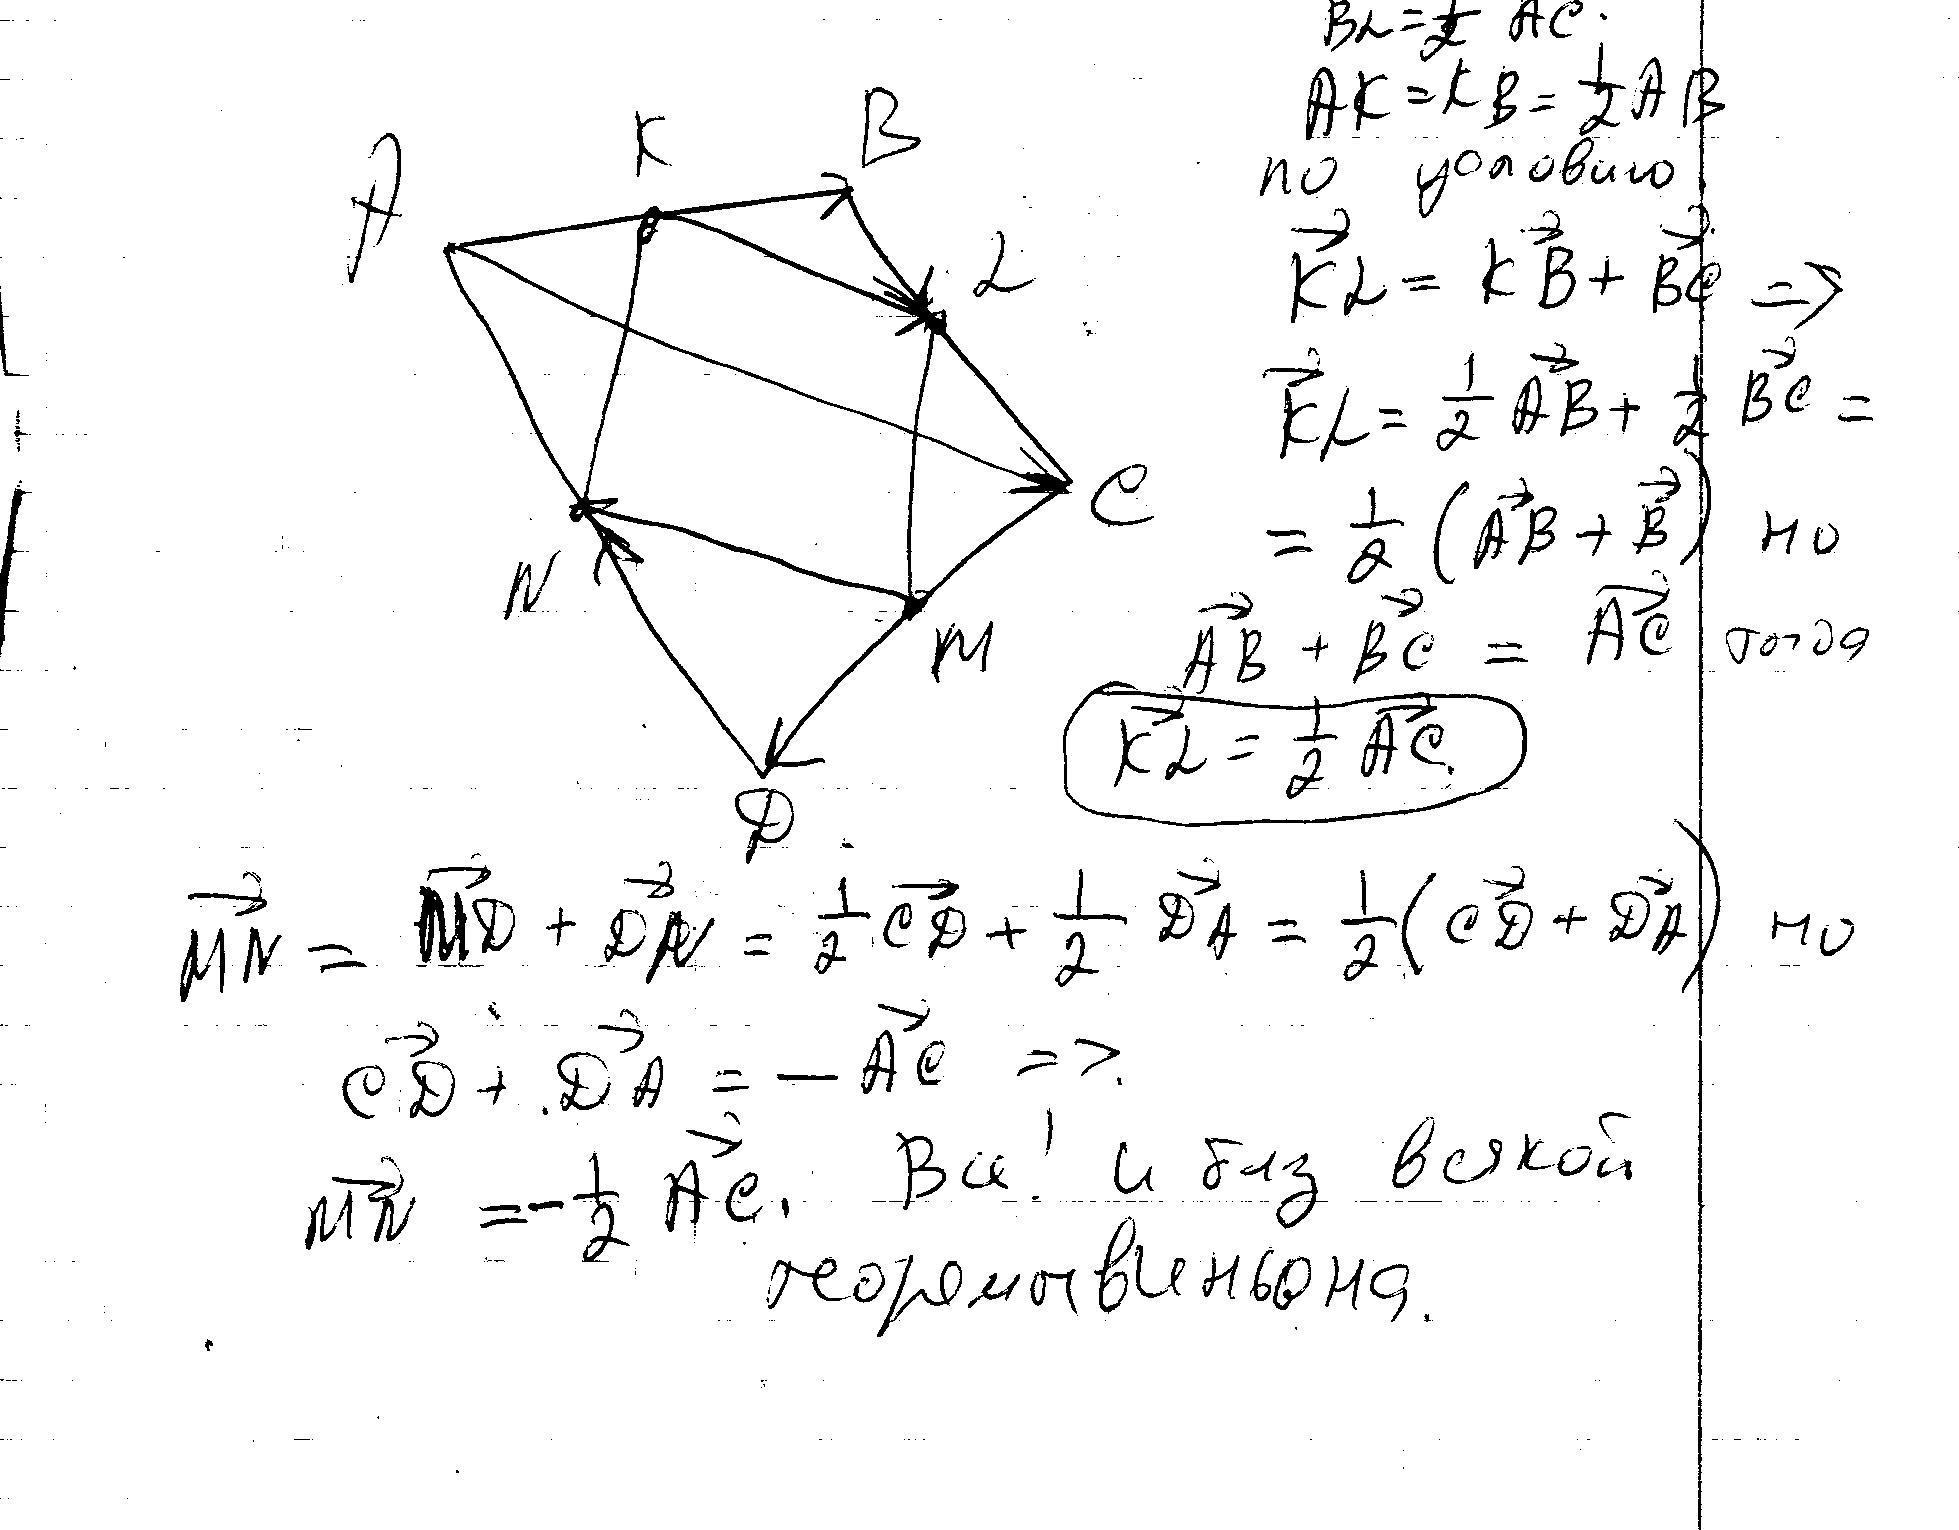 BL = 1/2 AC.
AK = KB = 1/2 AB
по условию.
A
K
B
L
C
M
N
D
K⃗L = KB⃗ + BC⃗ =>
K⃗L = 1/2 AB⃗ + 1/2 BC⃗ =
= 1/2 (AB⃗ + B⃗) но
AB⃗ + BC⃗ = AC⃗ тогда
KL⃗ = 1/2 AC⃗.
MN⃗ = MD⃗ + DN⃗ = 1/2 CD⃗ + 1/2 DA⃗ = 1/2 (CD⃗ + DA⃗) но
CD⃗ + DA⃗ = - AC⃗ =>
MN⃗ = - 1/2 AC⃗. Все! и без всякой
теоремы